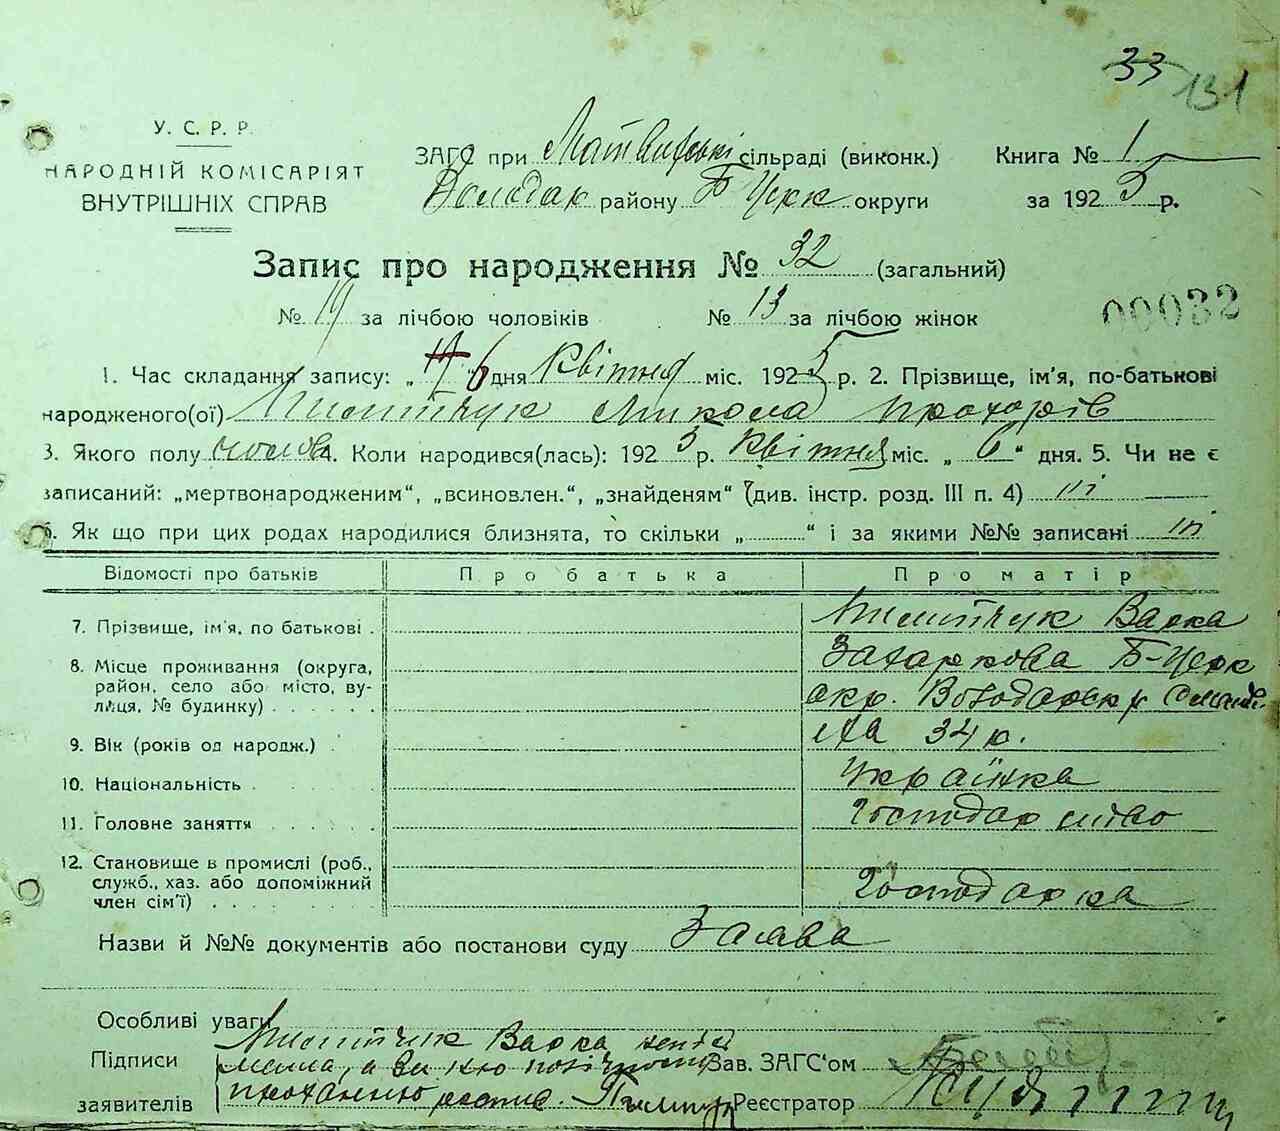 33 131
У. С. Р. Р.
НАРОДНІЙ КОМІСАРІЯТ
ВНУТРІШНІХ СПРАВ
ЗАГС при сільраді (виконк.) Книга № 1
Володак району Б Церк округи за 1925 р.
Запис про народження № 32 (загальний)
№ 19 за лічбою чоловіків № 13 за лічбою жінок
00032
1. Час складання запису: „ 6 “ дня Квітня міс. 1925 р. 2. Прізвище, ім'я, по-батькові
народженого(ої) Микола Прохорів
3. Якого полу чолов. 4. Коли народився(лась): 1925 р. Квітня міс. „ 6 “ дня. 5. Чи не є
записаний: „мертвонародженим“, „всиновлен.“, „знайденям“ (див. інстр. розд. III п. 4) ні
6. Як що при цих родах народилися близнята, то скільки „ “ і за якими №№ записані ні
Відомості про батьків Про батька Про матір
7. Прізвище, ім'я, по батькові . Варка
8. Місце проживання (округа, Захаркова Б-Церк
район, село або місто, ву-
лиця, № будинку) . . . . . . окр. Володарськ
9. Вік (років од народж.) . 34 р.
10. Національність . . . . . Українка
11. Головне заняття . . . . . Господарство
12. Становище в промислі (роб.,
служб., хаз. або допоміжний Господарка
член сім'ї) . . . . . . .
Назви й №№ документів або постанови суду Заява
Особливі уваги
Варка
Підписи Зав. ЗАГС'ом
заявителів Реєстратор